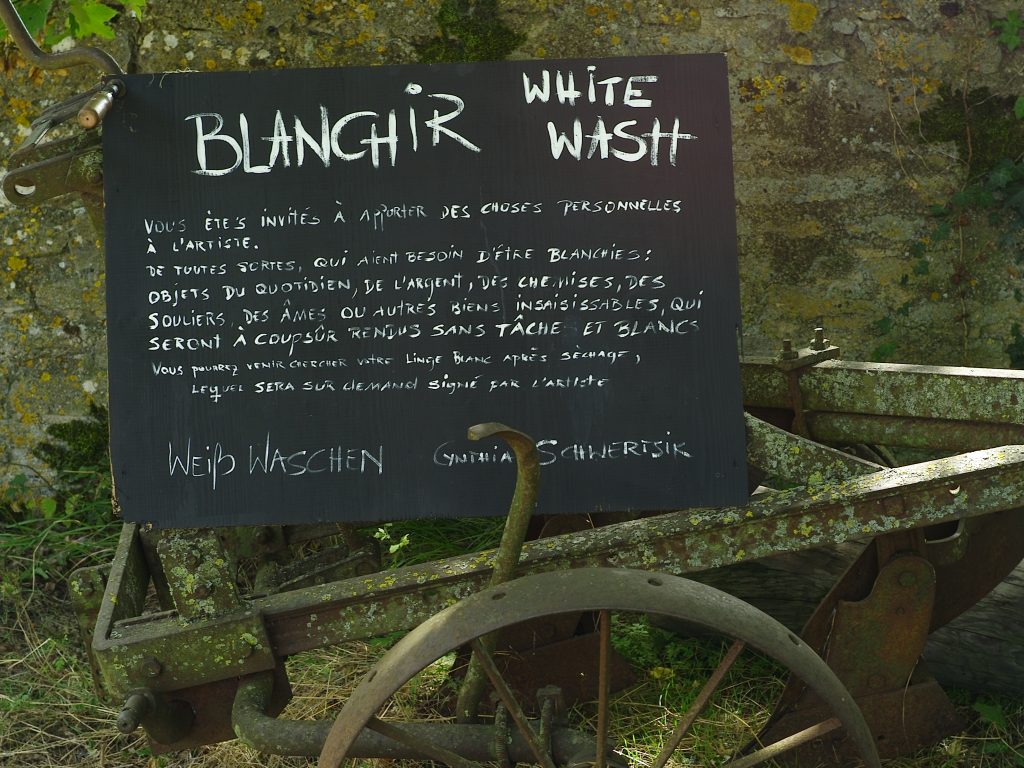 BLANCHIR
WHITE
WASH
VOUS ÊTES INVITÉS À APPORTER DES CHOSES PERSONNELLES
À L'ARTISTE.
DE TOUTES SORTES, QUI AIENT BESOIN D'ÊTRE BLANCHIES:
OBJETS DU QUOTIDIEN, DE L'ARGENT, DES CHEMISES, DES
SOULIERS, DES ÂMES OU AUTRES BIENS INSAISISSABLES, QUI
SERONT À COUPSÛR RENDUS SANS TÂCHE ET BLANCS
VOUS POUREZ VENIR CHERCHER VOTRE LINGE BLANC APRÈS SÈCHAGE,
LEQUEL SERA SUR DEMAND SIGNÉ PAR L'ARTISTE
WEIß WASCHEN
CYNTHIA SCHWERTSIK